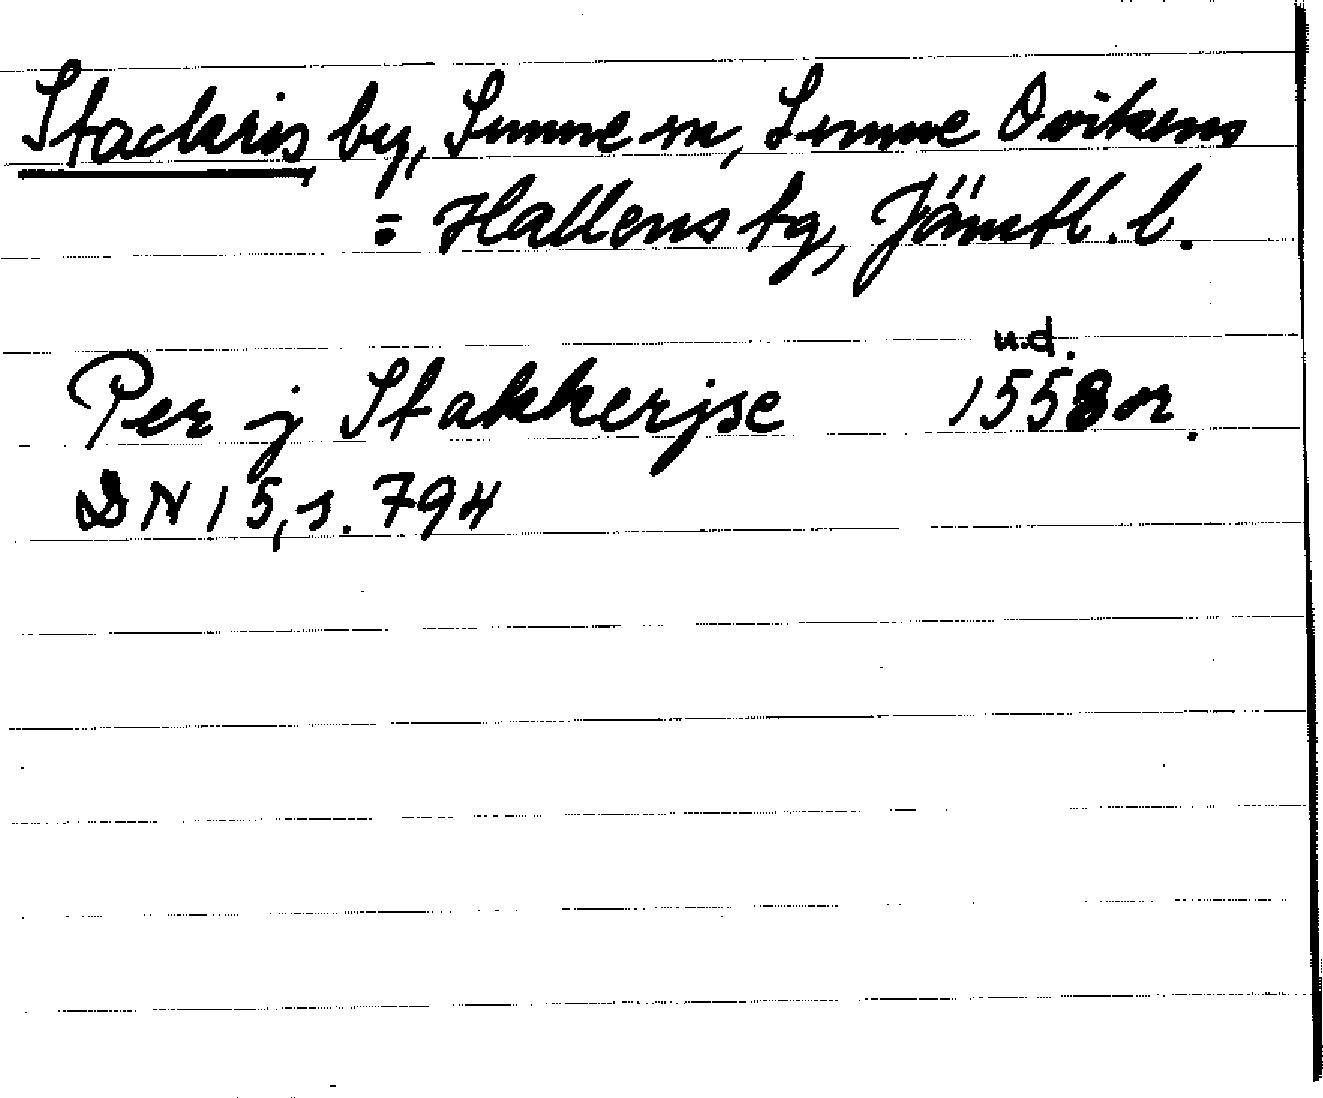 Stackris by, Sunne sn, Sunne Ovikens
= Hallens tg, Jämtl. l.
u.d.
Per j Stakkerjse 1558 or.
DN 15, s. 794